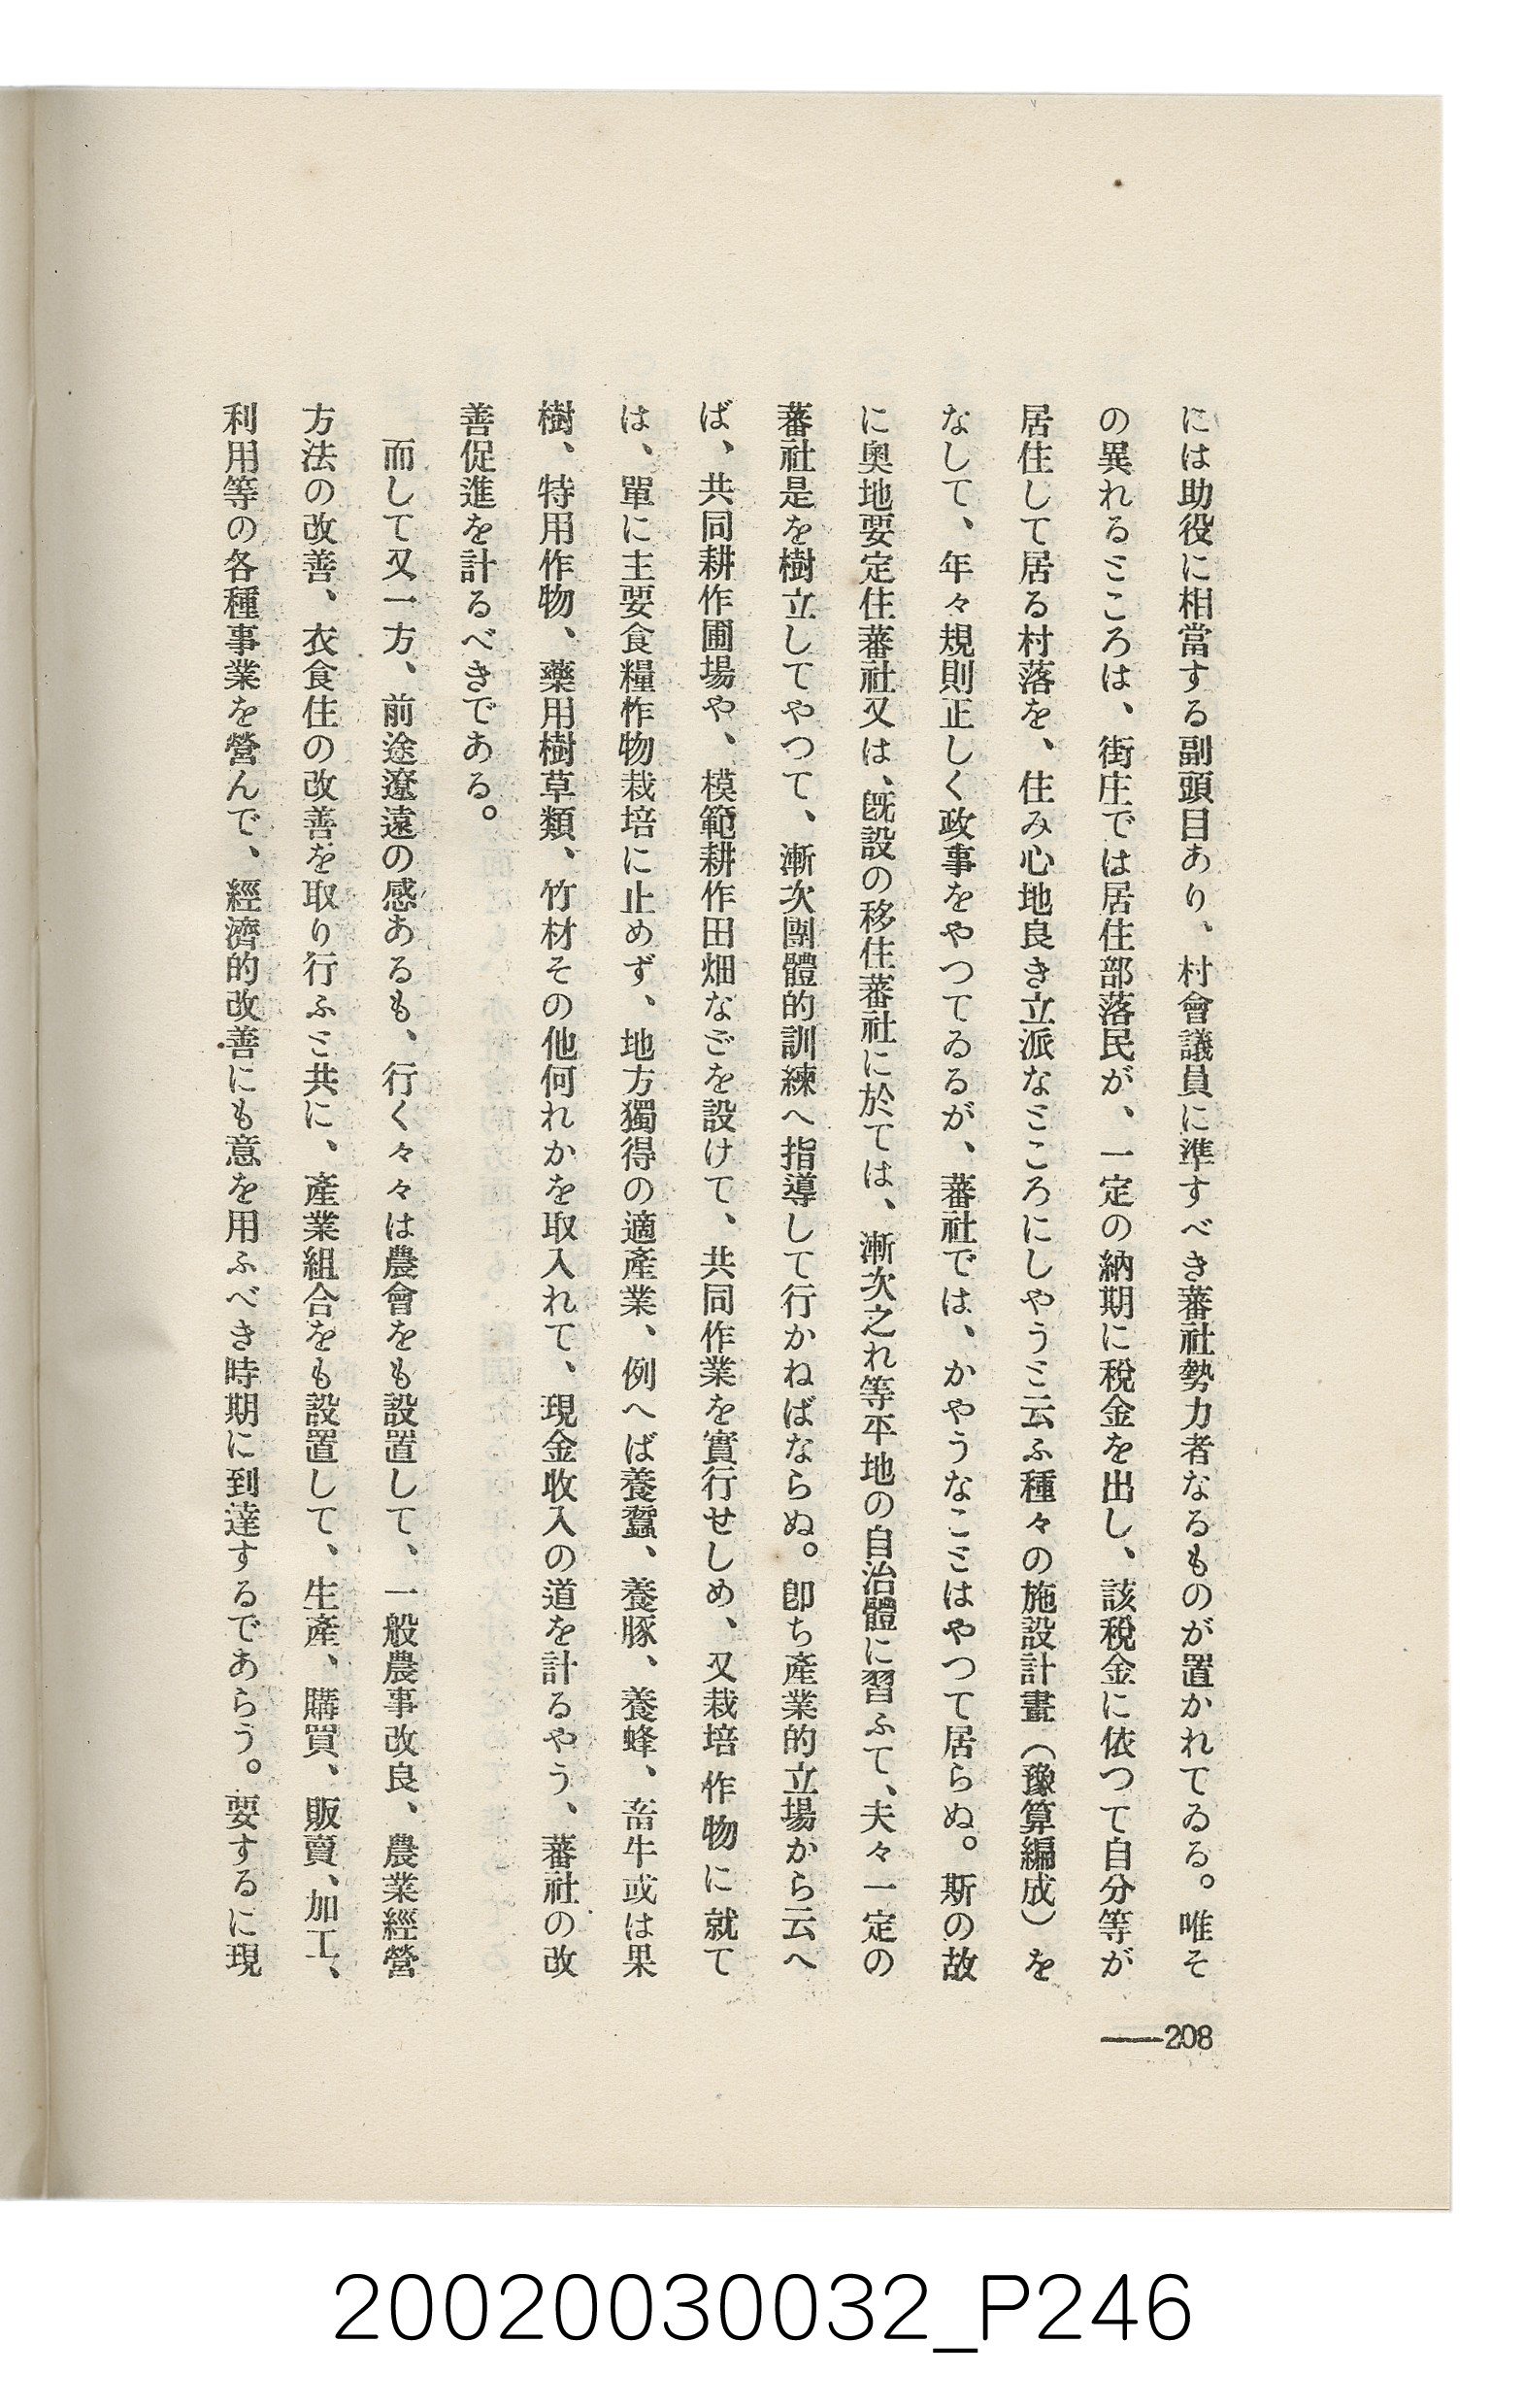 には助役に相當する副頭目あり、村會議員に準すべき蕃社勢力者なるものが置かれてゐる。唯そ
の異れるところは、街庄では居住部落民が、一定の納期に税金を出し、該税金に依つて自分等が
居住して居る村落を、住み心地良き立派なところにしやうと云ふ種々の施設計畫（豫算編成）を
なして、年々規則正しく政事をやつてゐるが、蕃社では、かやうなことはやつて居らぬ。斯の故
に奥地要定住蕃社又は、既設の移住蕃社に於ては、漸次之れ等平地の自治體に習ふて、夫々一定の
蕃社是を樹立してやつて、漸次團體的訓練へ指導して行かねばならぬ。卽ち產業的立場から云へ
ば、共同耕作圃場や、模範耕作田畑などを設けて、共同作業を實行せしめ、又栽培作物に就て
は、單に主要食糧作物栽培に止めず、地方獨得の適產業、例へば養蠶、養豚、養蜂、畜牛或は果
樹、特用作物、藥用樹草類、竹材その他何れかを取入れて、現金收入の道を計るやう、蕃社の改
善促進を計るべきである。
而して又一方、前途遼遠の感あるも、行く々々は農會をも設置して、一般農事改良、農業經營
方法の改善、衣食住の改善を取り行ふと共に、產業組合をも設置して、生產、購買、販賣、加工、
利用等の各種事業を營んで、經濟的改善にも意を用ふべき時期に到達するであらう。要するに現
——208
20020030032_P246